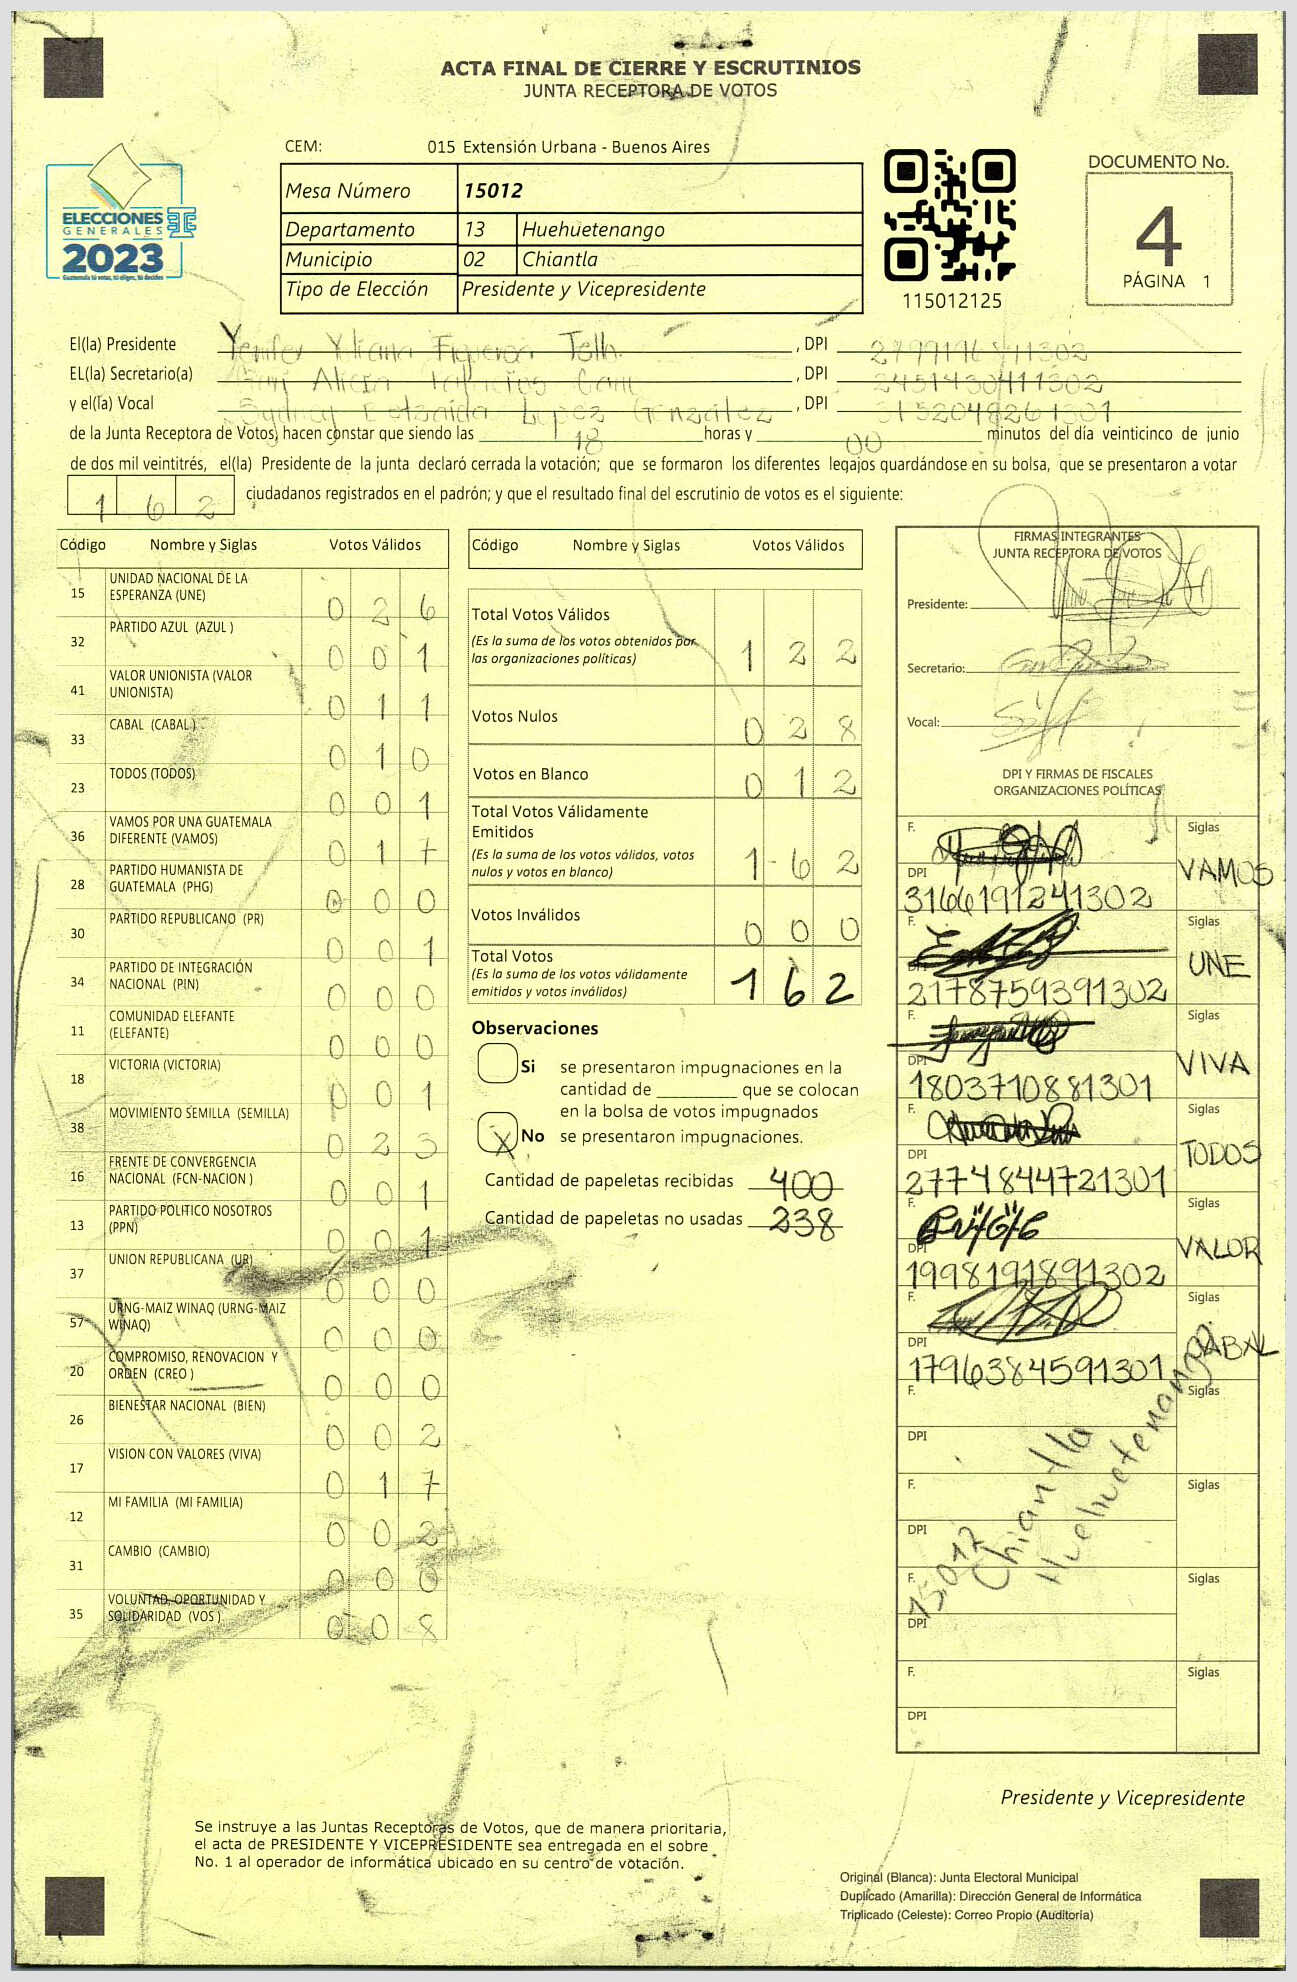 ACTA FINAL DE CIERRE Y ESCRUTINIOS
JUNTA RECEPTORA DE VOTOS
CEM: 015 Extensión Urbana - Buenos Aires
ELECCIONES
GENERALES
2023
Guatemala tú votas, tú eliges, tú decides
Mesa Número 15012
Departamento 13 Huehuetenango
Municipio 02 Chiantla
Tipo de Elección Presidente y Vicepresidente
115012125
DOCUMENTO No.
4
PÁGINA 1
El(la) Presidente Yenifer Yuliana Figueroa , DPI
EL(la) Secretario(a) Alicia , DPI 2451430411302
y el(la) Vocal Sydney López González , DPI 3152048261301
de la Junta Receptora de Votos, hacen constar que siendo las 18 horas y 00 minutos del día veinticinco de junio
de dos mil veintitrés, el(la) Presidente de la junta declaró cerrada la votación; que se formaron los diferentes legajos guardándose en su bolsa, que se presentaron a votar
1 6 2 ciudadanos registrados en el padrón; y que el resultado final del escrutinio de votos es el siguiente:
Código Nombre y Siglas Votos Válidos
15 UNIDAD NACIONAL DE LA ESPERANZA (UNE) 0 2 6
32 PARTIDO AZUL (AZUL ) 0 0 1
41 VALOR UNIONISTA (VALOR UNIONISTA) 0 1 1
33 CABAL (CABAL ) 0 1 0
23 TODOS (TODOS) 0 0 1
36 VAMOS POR UNA GUATEMALA DIFERENTE (VAMOS) 0 1 7
28 PARTIDO HUMANISTA DE GUATEMALA (PHG) 0 0 0
30 PARTIDO REPUBLICANO (PR) 0 0 1
34 PARTIDO DE INTEGRACIÓN NACIONAL (PIN) 0 0 0
11 COMUNIDAD ELEFANTE (ELEFANTE) 0 0 0
18 VICTORIA (VICTORIA) 0 0 1
38 MOVIMIENTO SEMILLA (SEMILLA) 0 2 3
16 FRENTE DE CONVERGENCIA NACIONAL (FCN-NACION ) 0 0 1
13 PARTIDO POLITICO NOSOTROS (PPN) 0 0 1
37 UNION REPUBLICANA (UR) 0 0 0
57 URNG-MAIZ WINAQ (URNG-MAIZ WINAQ) 0 0 0
20 COMPROMISO, RENOVACION Y ORDEN (CREO ) 0 0 0
26 BIENESTAR NACIONAL (BIEN) 0 0 2
17 VISION CON VALORES (VIVA) 0 1 7
12 MI FAMILIA (MI FAMILIA) 0 0 2
31 CAMBIO (CAMBIO) 0 0 0
35 VOLUNTAD, OPORTUNIDAD Y SOLIDARIDAD (VOS ) 0 0 8
Código Nombre y Siglas Votos Válidos
Total Votos Válidos 1 2 2
(Es la suma de los votos obtenidos por
las organizaciones políticas)
Votos Nulos 0 2 8
Votos en Blanco 0 1 2
Total Votos Válidamente
Emitidos 1 6 2
(Es la suma de los votos válidos, votos
nulos y votos en blanco)
Votos Inválidos 0 0 0
Total Votos 1 6 2
(Es la suma de los votos válidamente
emitidos y votos inválidos)
Observaciones
Si se presentaron impugnaciones en la
cantidad de ________ que se colocan
en la bolsa de votos impugnados
X No se presentaron impugnaciones.
Cantidad de papeletas recibidas 400
Cantidad de papeletas no usadas 238
FIRMAS INTEGRANTES
JUNTA RECEPTORA DE VOTOS
Presidente:
Secretario:
Vocal:
DPI Y FIRMAS DE FISCALES
ORGANIZACIONES POLÍTICAS
F. Siglas
DPI 3166191241302 VAMOS
F. Siglas
DPI 2178759391302 UNE
F. Siglas
DPI 1803710881301 VIVA
F. Siglas
DPI 2774844721301 TODOS
F. Siglas
DPI 1998191891302 VALOR
F. Siglas
DPI 1796384591301 CABAL
F. Siglas
DPI
F. Siglas
DPI
F. Siglas
DPI
F. Siglas
DPI
15012
Chiantla
Huehuetenango
Presidente y Vicepresidente
Se instruye a las Juntas Receptoras de Votos, que de manera prioritaria,
el acta de PRESIDENTE Y VICEPRESIDENTE sea entregada en el sobre
No. 1 al operador de informática ubicado en su centro de votación.
Original (Blanca): Junta Electoral Municipal
Duplicado (Amarilla): Dirección General de Informática
Triplicado (Celeste): Correo Propio (Auditoría)